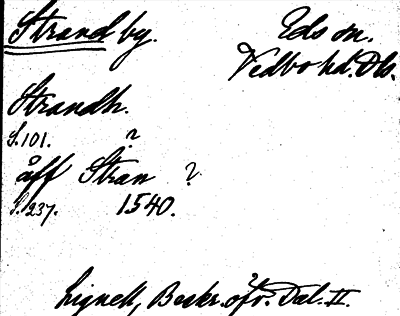 Strand by. Eds sn.
Vedbo hd. Dls.
Strandh.
S. 101. ?
åff Stran ?
S. 237. 1540.
Lignell, Beskr. öfv. Dal. II.